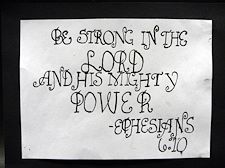 BE STRONG IN THE
LORD
AND HIS MIGHTY
POWER
-EPHESIANS
6:10